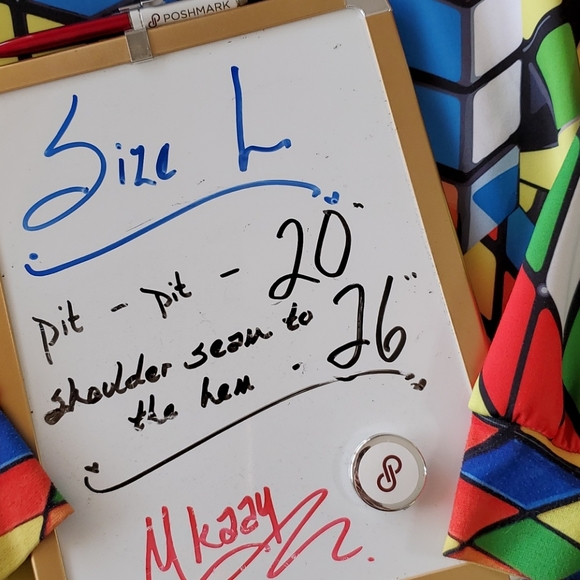 POSHMARK
Size L
pit - pit - 20"
shoulder seam to
the hem - 26"
Mkaay